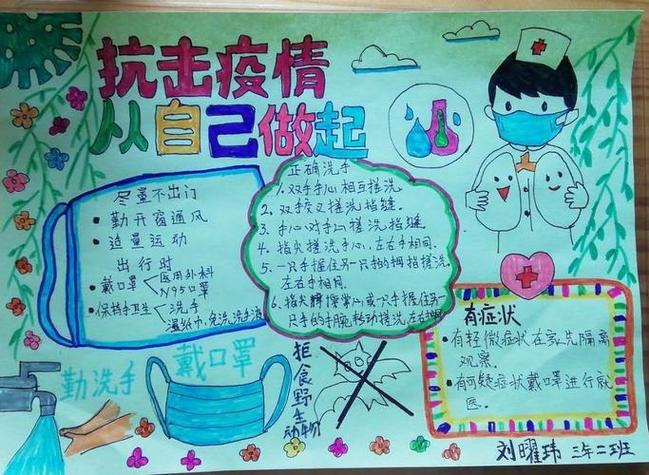 抗击疫情
从自己做起
尽量不出门
勤开窗通风
适量运动
出行时
戴口罩
医用外科
N95口罩
保持手卫生
洗手
湿纸巾,免洗洗手液
正确洗手
1.双手手心相互搓洗.
2.双手交叉搓洗指缝.
3.手心对手心搓洗指缝.
4.指尖搓洗手心,左右手相同.
5.一只手握住另一只手的拇指搓洗.
左右手相同.
6.指尖
摩擦掌心或一只手握住另一
只手的手腕转动搓洗,左右
有症状
有轻微症状在家先隔离
观察.
有可疑症状戴口罩进行就
医.
勤洗手
戴口罩
拒食野生动物
刘曜玮 三年二班